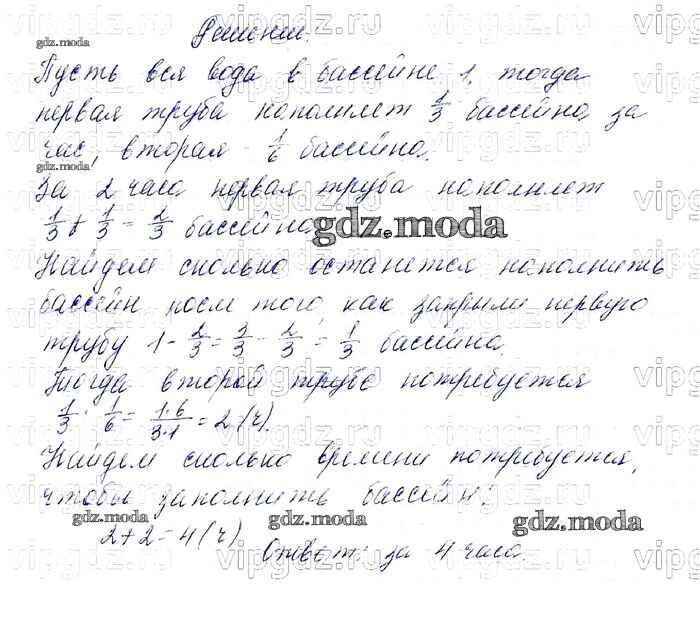 Решение.
Пусть вся вода в бассейне 1, тогда
первая труба наполняет 1/3 бассейна за
час, вторая - 1/6 бассейна.
За 2 часа первая труба наполняет
1/3 + 1/3 = 2/3 бассейна.
Найдем сколько останется наполнить
бассейн после того, как закрыли первую
трубу 1 - 2/3 = 3/3 - 2/3 = 1/3 бассейна.
Тогда второй трубе потребуется
1/3 : 1/6 = 1·6/3·1 = 2 (ч).
Найдем сколько времени потребуется,
чтобы заполнить бассейн.
2+2=4 (ч)
Ответ: за 4 часа.
gdz.moda
vipgdz.ru